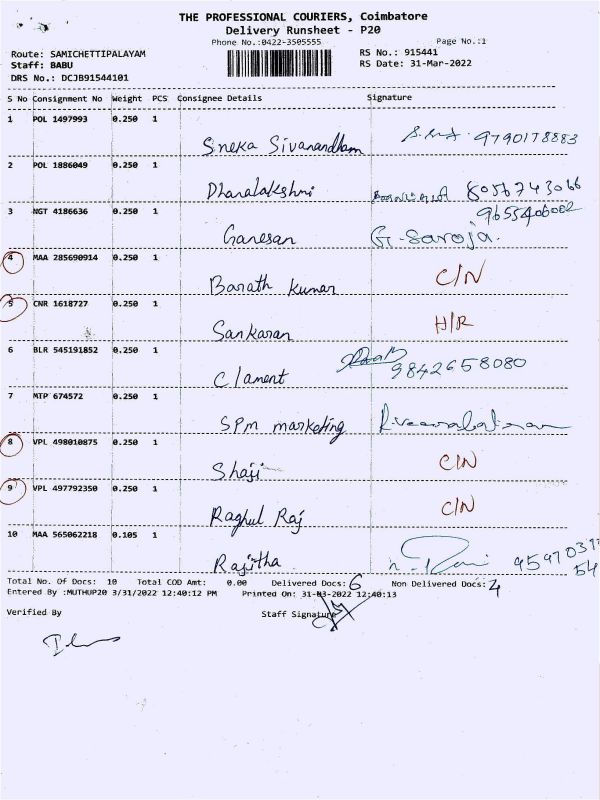 THE PROFESSIONAL COURIERS, Coimbatore
Delivery Runsheet - P20
Phone No.:0422-3505555 Page No.:1
Route: SAMICHETTIPALAYAM RS No.: 915441
Staff: BABU RS Date: 31-Mar-2022
DRS No.: DCJB91544101
S No Consignment No Weight PCS Consignee Details Signature
1 POL 1497993 0.250 1
Sneka Sivanandham 9790178883
2 POL 1886049 0.250 1
Dhanalakshmi 8056743066
3 NGT 4186636 0.250 1 9655406002
Ganesan G. Saroja.
4 MAA 285690914 0.250 1 C/N
Barath Kumar
5 CNR 1618727 0.250 1 H/R
Sankaran
6 BLR 545191852 0.250 1 9842658080
Clament
7 MTP 674572 0.250 1
SPM marketing
8 VPL 498010875 0.250 1 C/N
Shaji
9 VPL 497792350 0.250 1 C/N
Raghul Raj
10 MAA 565062218 0.105 1
Rajitha
Total No. Of Docs: 10 Total COD Amt: 0.00 Delivered Docs: 6 Non Delivered Docs: 4
Entered By :MUTHUP20 3/31/2022 12:40:12 PM Printed On: 31-03-2022 12:40:13
Verified By Staff Signature